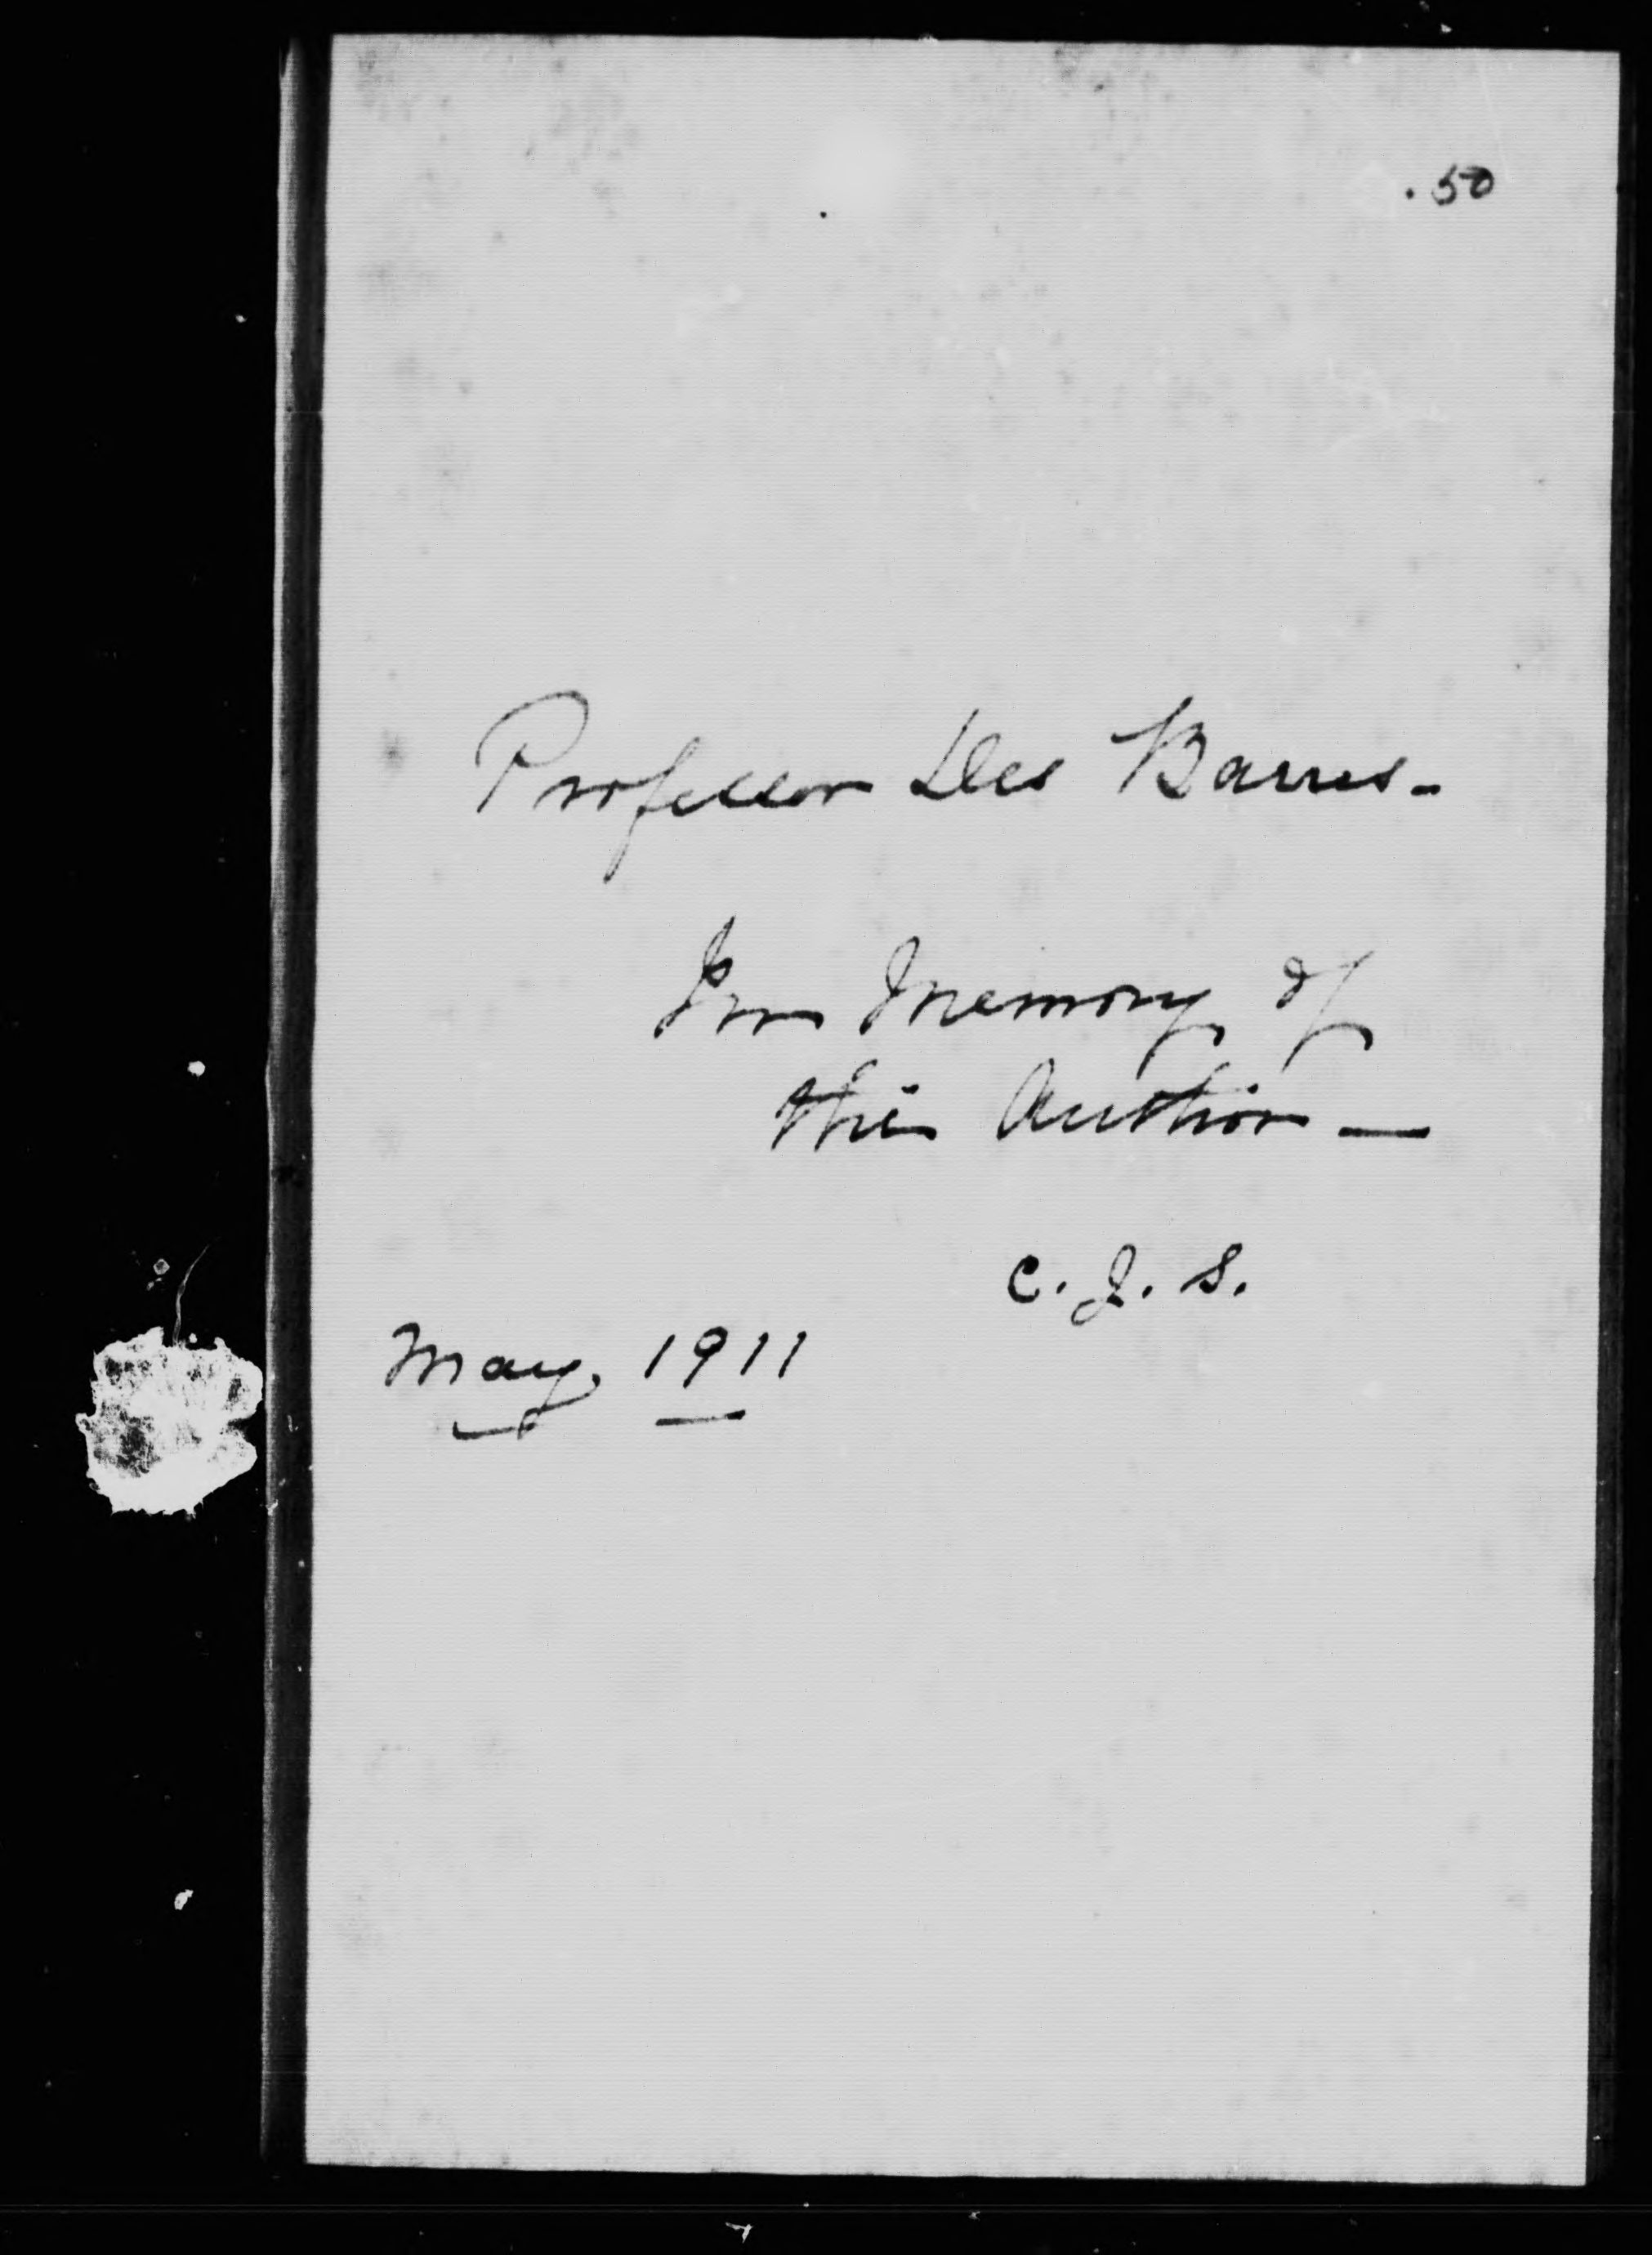 .50
Professor Des Barres-
In Memory of
the Author —
C. J. S.
May, 1911